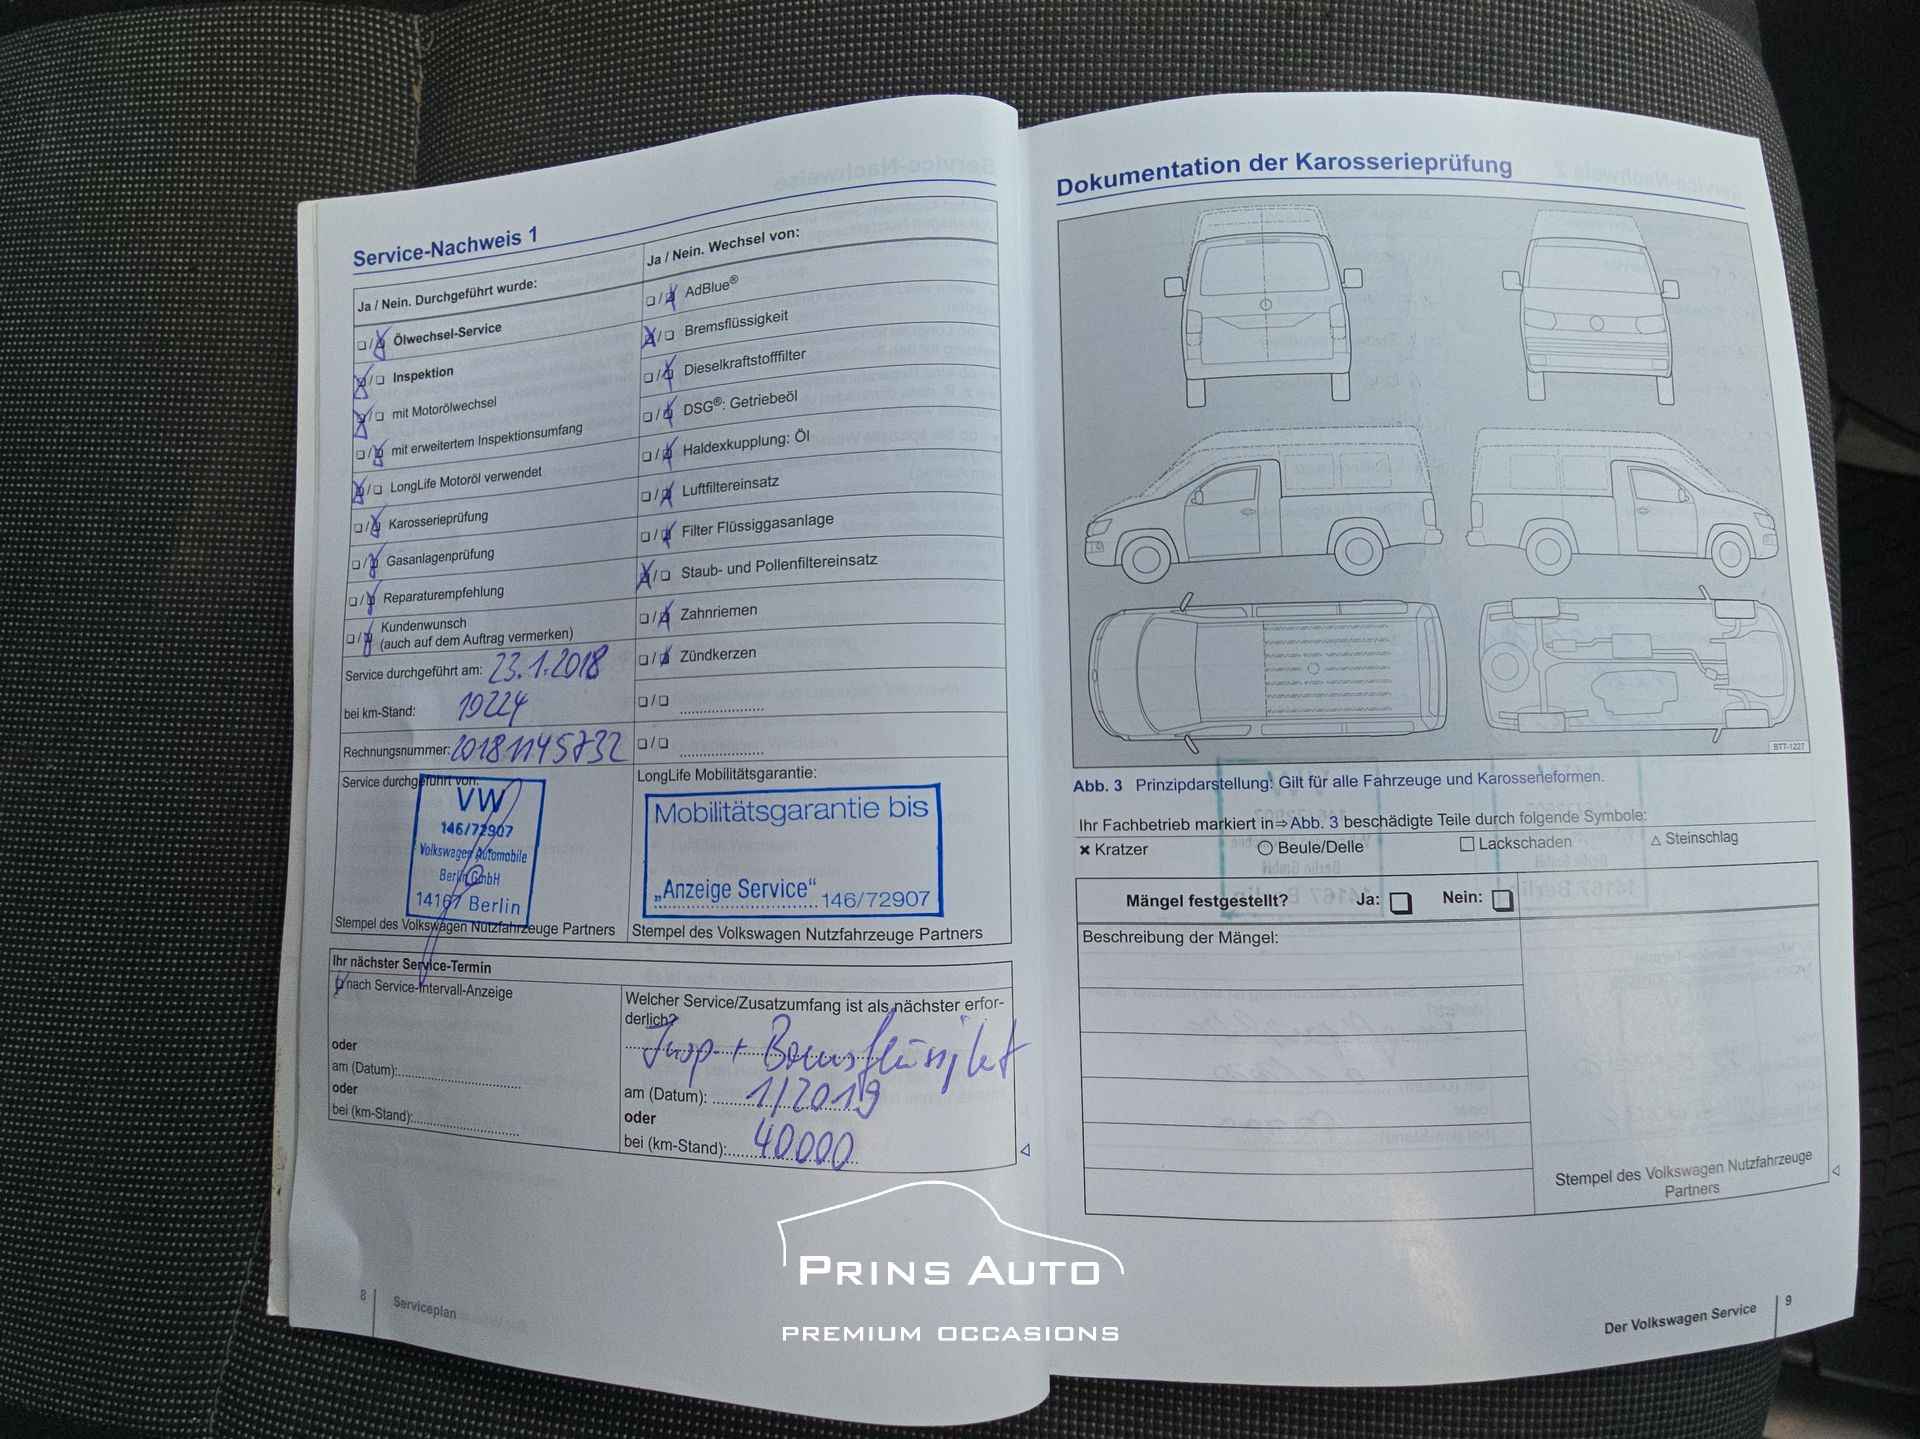 Service-Nachweis 1
Ja / Nein. Durchgeführt wurde:
Ölwechsel-Service
Inspektion
mit Motorölwechsel
mit erweitertem Inspektionsumfang
LongLife Motoröl verwendet
Karosserieprüfung
Gasanlagenprüfung
Reparaturempfehlung
Kundenwunsch
(auch auf dem Auftrag vermerken)
Service durchgeführt am: 23.1.2018
bei km-Stand: 10224
Rechnungsnummer: 20181145732
Service durchgeführt von:
VW
146/72907
Volkswagen Automobile
Berlin GmbH
14167 Berlin
Stempel des Volkswagen Nutzfahrzeuge Partners
Ja / Nein. Wechsel von:
AdBlue®
Bremsflüssigkeit
Dieselkraftstofffilter
DSG®: Getriebeöl
Haldexkupplung: Öl
Luftfiltereinsatz
Filter Flüssiggasanlage
Staub- und Pollenfiltereinsatz
Zahnriemen
Zündkerzen
LongLife Mobilitätsgarantie:
Mobilitätsgarantie bis
„Anzeige Service“ 146/72907
Stempel des Volkswagen Nutzfahrzeuge Partners
Ihr nächster Service-Termin
nach Service-Intervall-Anzeige
oder
am (Datum):
oder
bei (km-Stand):
Welcher Service/Zusatzumfang ist als nächster erfor-
derlich?
Insp. + Bremsflüssigkeit
am (Datum): 1/2019
oder
bei (km-Stand): 40000
8 Serviceplan
Dokumentation der Karosserieprüfung
BT7-1227
Abb. 3 Prinzipdarstellung: Gilt für alle Fahrzeuge und Karosserieformen.
Ihr Fachbetrieb markiert in⇒Abb. 3 beschädigte Teile durch folgende Symbole:
Kratzer Beule/Delle Lackschaden Steinschlag
Mängel festgestellt? Ja: Nein:
Beschreibung der Mängel:
Stempel des Volkswagen Nutzfahrzeuge
Partners
Der Volkswagen Service 9
PRINS AUTO
PREMIUM OCCASIONS